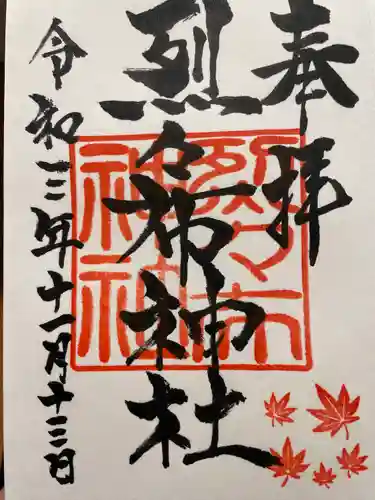 奉拝
烈々布神社
烈々布
神社
令和三年十一月十三日